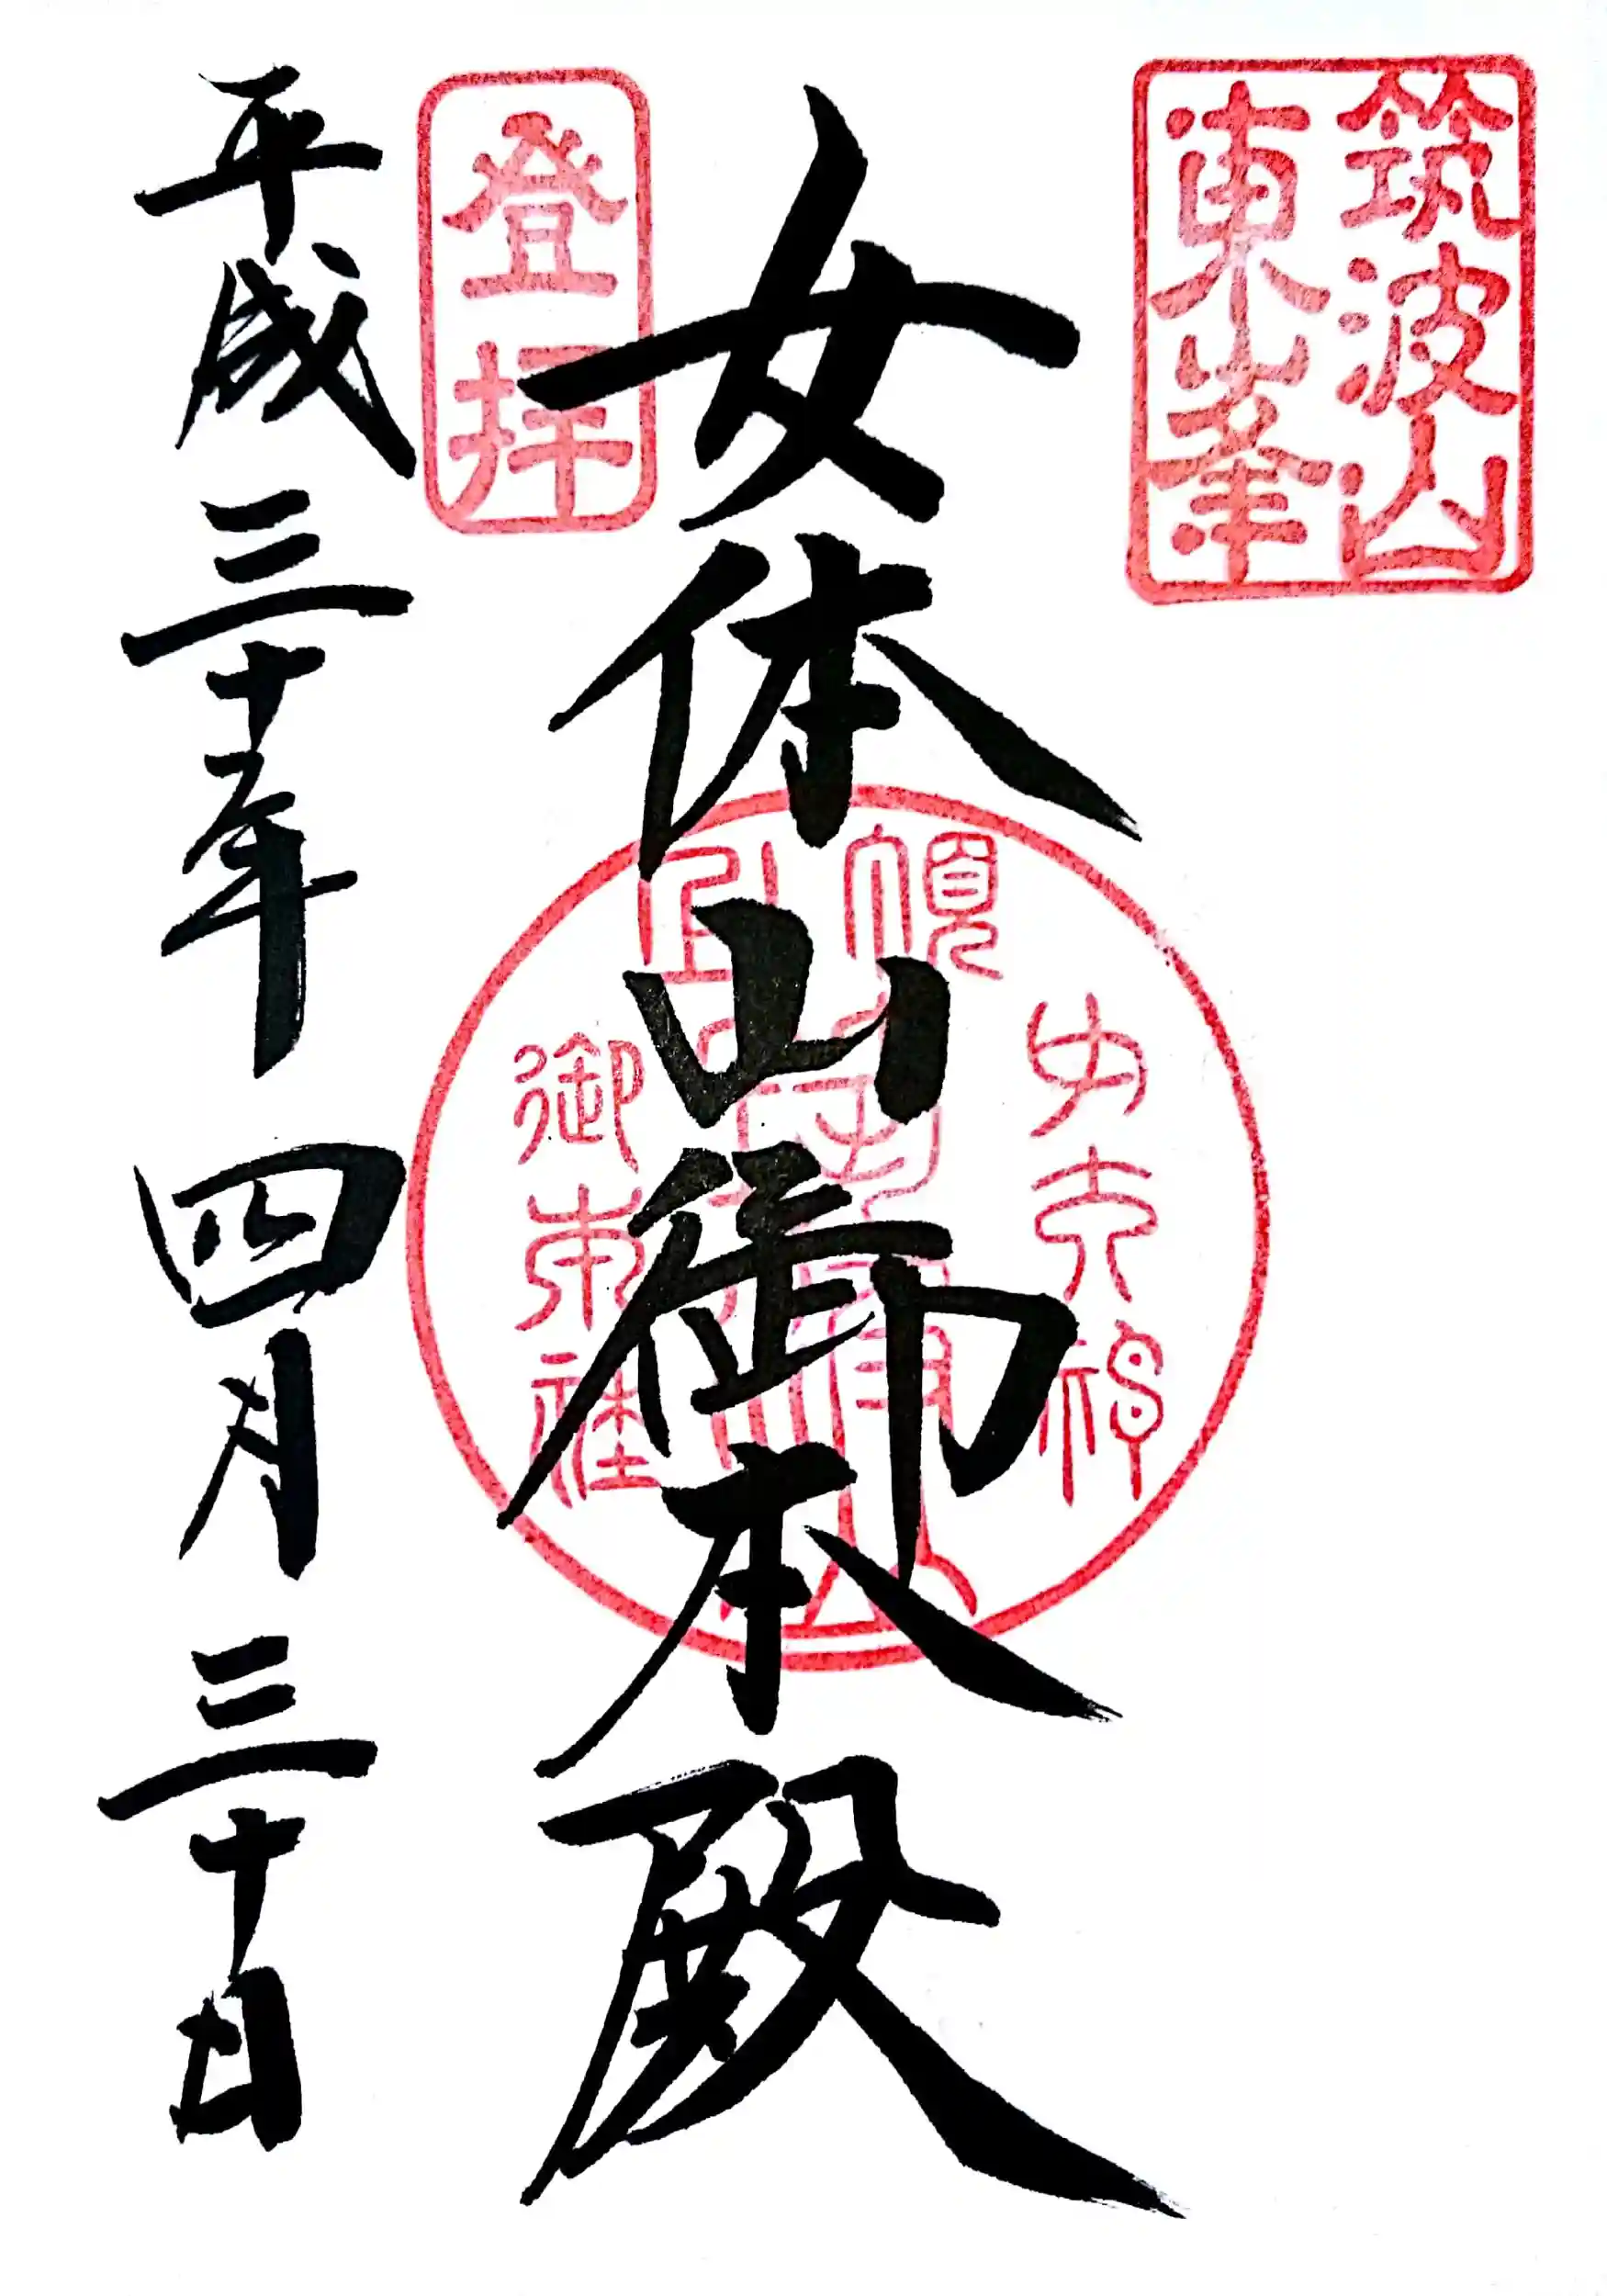 筑波山
東峯
女体山御本殿
登拝
平成三十年 四月 三十日
女大神
御本社